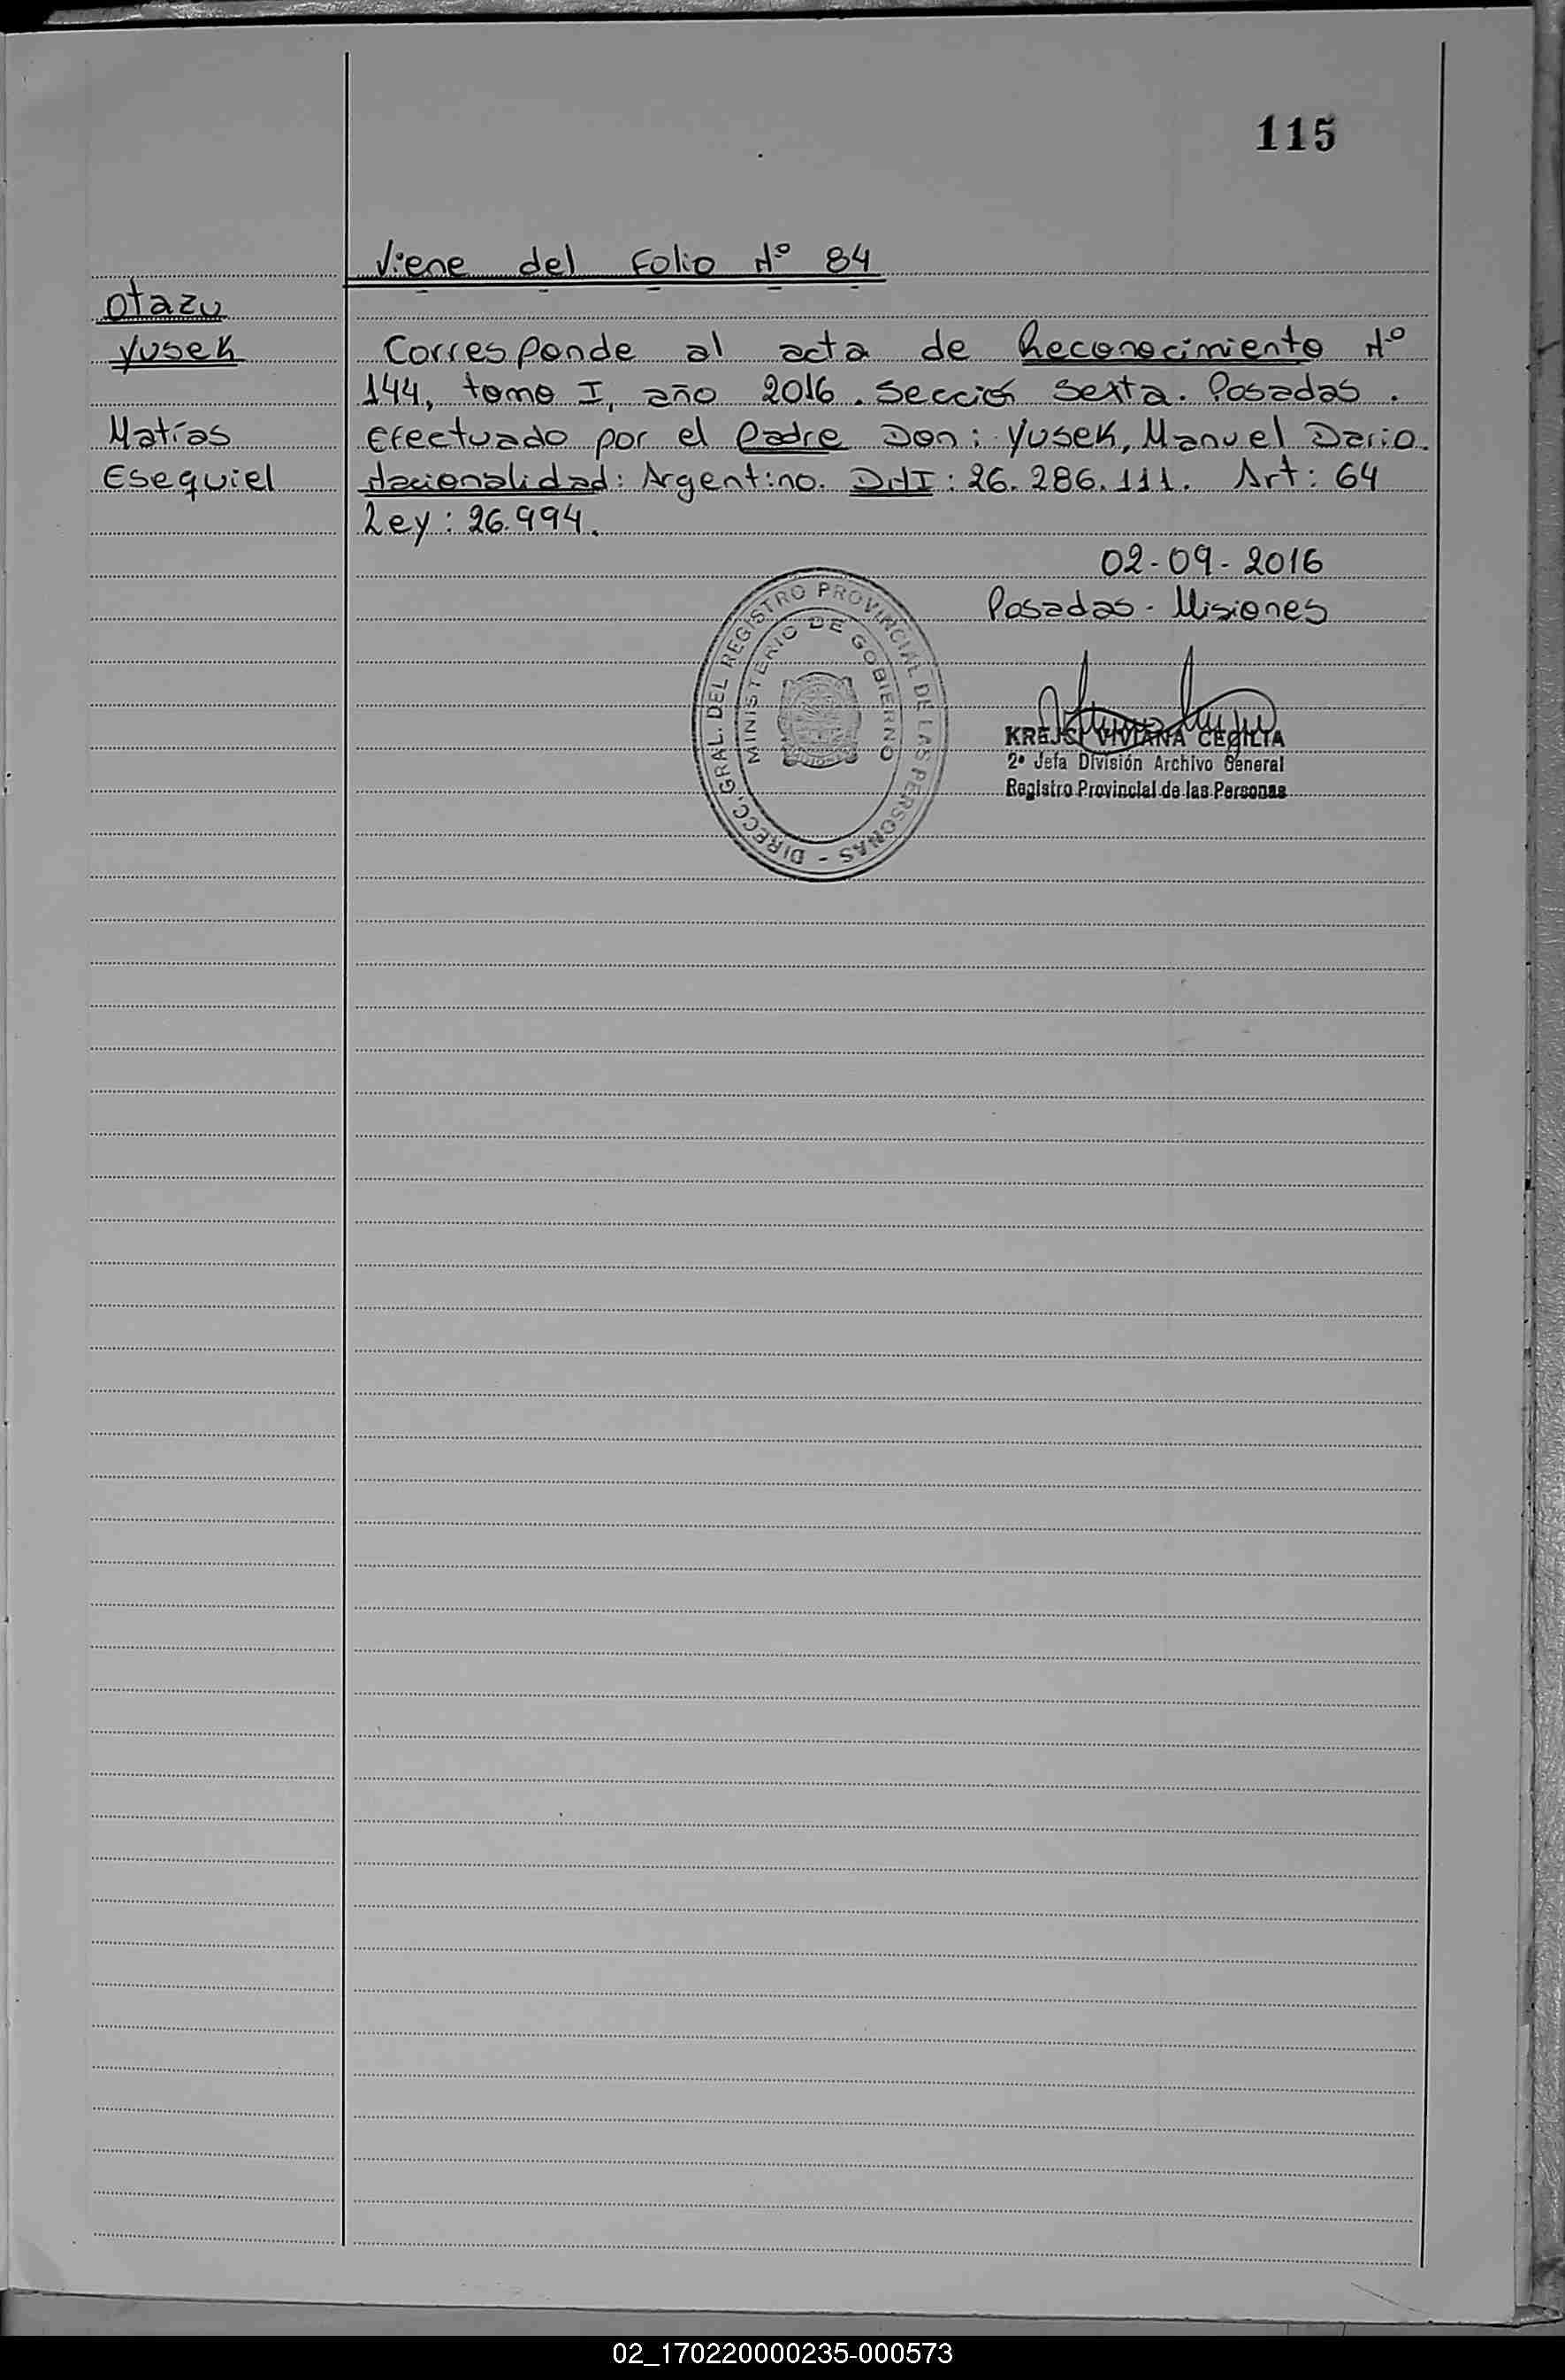 115
Viene del Folio Nº 84
Otazu
Yusek
Matías
Esequiel
Corresponde al acta de Reconocimiento Nº
144, tomo I, año 2016. Sección Sexta. Posadas.
Efectuado por el Padre Don: Yusek, Manuel Dario.
Nacionalidad: Argentino. DNI: 26.286.111. Art: 64
Ley: 26.994.
02-09-2016
Posadas - Misiones
DIRECC. GRAL. DEL REGISTRO PROVINCIAL DE LAS PERSONAS -
MINISTERIO DE GOBIERNO
KREJCI VIVIANA CECILIA
2ª Jefa División Archivo General
Registro Provincial de las Personas
02_170220000235-000573